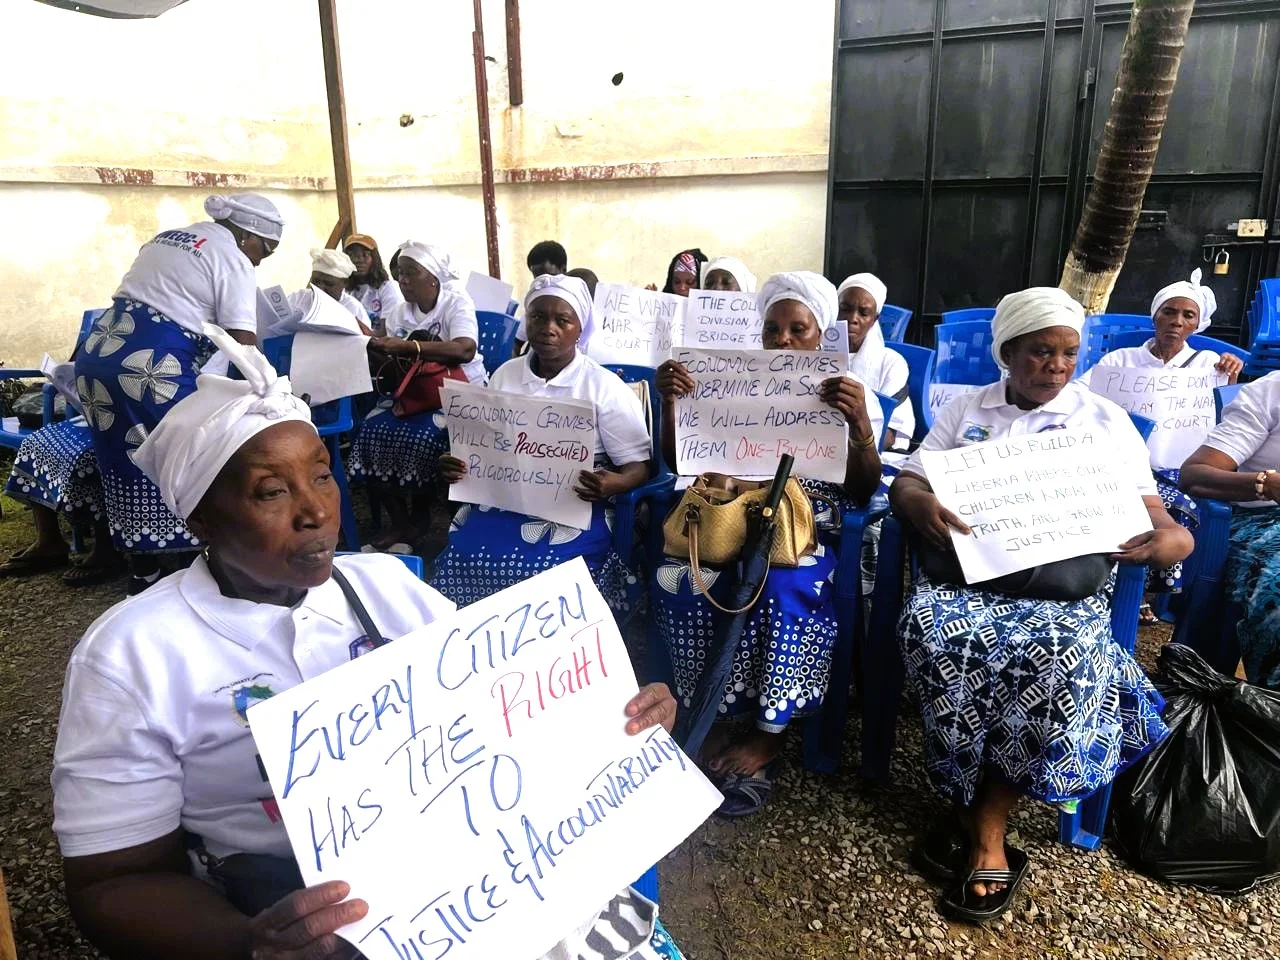 & HEALING FOR ALL
WE WANT
WAR CRIME
COURT NOW
THE COU
DIVISION, I
BRIDGE TO
ECONOMIC CRIMES
WILL BE PROSECUTED
RIGOROUSLY!
ECONOMIC CRIMES
UNDERMINE OUR SOC
WE WILL ADDRESS
THEM ONE-BY-ONE
WE
LET US BUILD A
LIBERIA WHERE OUR
CHILDREN KNOW THE
TRUTH, AND GROW IN
JUSTICE
PLEASE DON'T
LAY THE WAR
COURT
EVERY CITIZEN
HAS THE RIGHT
TO
JUSTICE & ACCOUNTABILITY